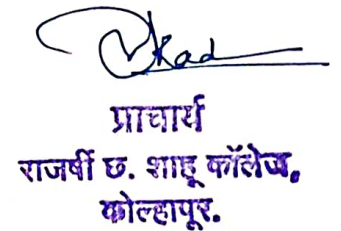 प्राचार्य
राजर्षी छ. शाहू कॉलेज,
कोल्हापूर.